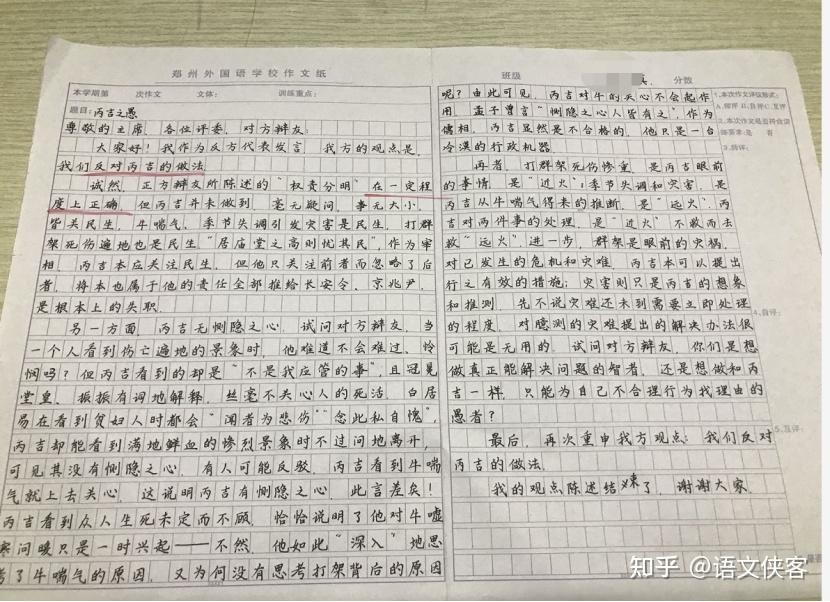 郑州外国语学校作文纸
本学期第 次作文 文体: 训练重点:
题目:丙吉之愚
尊敬的主席、各位评委、对方辩友:
大家好!我作为反方代表发言,我方的观点是,
我们反对丙吉的做法
诚然,正方辩友所陈述的“权责分明”在一定程
度上正确,但丙吉并未做到,毫无疑问,事无大小,
皆关民生,牛喘气、季节失调引发灾害是民生,打群
架死伤遍地也是民生“居庙堂之高则忧其民”,作为宰
相,丙吉本应关注民生,但他只关注前者而忽略了后
者,将本也属于他的责任全部推给长安令、京兆尹,
是根本上的失职.
另一方面,丙吉无恻隐之心.试问对方辩友,当
一个人看到伤亡遍地的景象时,他难道不会难过、怜
悯吗?但丙吉看到的却是“不是我应管的事”,且冠冕
堂皇、振振有词地解释,丝毫不关心人的死活.白居
易在看到贫妇人时都会“闻者为悲伤”“念此私自愧”,
丙吉却能看到满地鲜血的惨烈景象时不过问地离开,
可见其没有恻隐之心.有人可能反驳,丙吉看到牛喘
气就上去关心,这说明丙吉有恻隐之心.此言差矣!
丙吉看到众人生死未定而不顾,恰恰说明了他对牛嘘
寒问暖只是一时兴起——不然,他如此“深入”地思
考了牛喘气的原因,又为何没有思考打架背后的原因
班级 分数
呢?由此可见,丙吉对牛的关心不会起作
用.孟子曾言“恻隐之心人皆有之”,作为
儒相,丙吉显然是不合格的,他只是一台
冷漠的行政机器.
再者,打群架死伤惨重,是丙吉眼前
的事情,是“近火”;季节失调和灾害,是
丙吉从牛喘气得来的推断,是“远火”.丙
吉对两件事的处理,是“近火”不救而去
救“远火”.进一步,群架是眼前的灾祸,
对已发生的危机和灾难,丙吉本可以提出
行之有效的措施;灾害则只是丙吉的想象
和推测,先不说灾难还未到需要立即处理
的程度,对臆测的灾难提出的解决办法很
可能是无用的.试问对方辩友,你们是想
做真正能解决问题的智者,还是想做和丙
吉一样,只能为自己不合理行为找理由的
愚者?
最后,再次重申我方观点:我们反对
丙吉的做法.
我的观点陈述结束了,谢谢大家.
1.本次作文评议形式:
3.师评:
4.自评:
5.互评:
知乎 @语文侠客